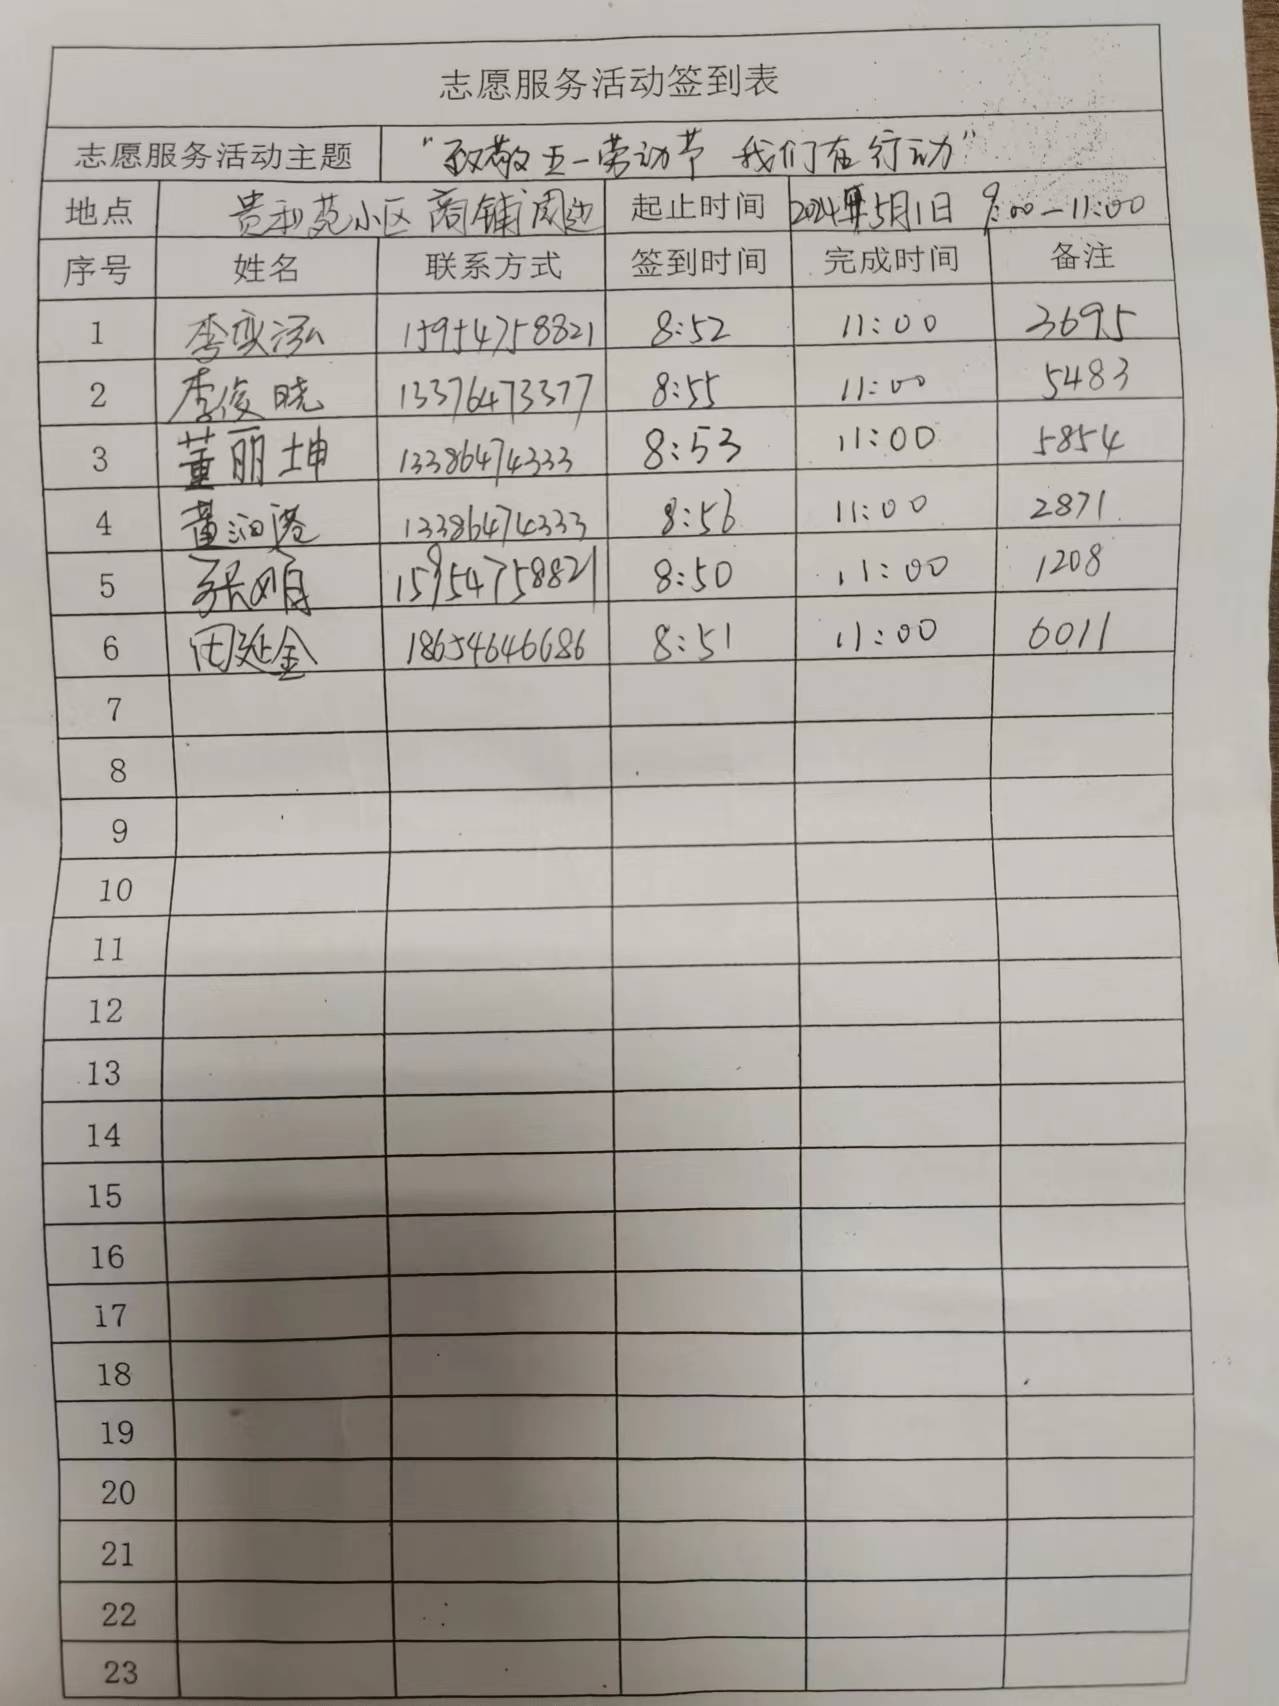 志愿服务活动签到表
志愿服务活动主题 “致敬五一劳动节 我们在行动”
地点 贵和苑小区商铺周边 起止时间 2024年5月1日 9:00-11:00
序号 姓名 联系方式 签到时间 完成时间 备注
1 李奕泓 15954758821 8:52 11:00 3695
2 李俊晓 13376473377 8:55 11:00 5483
3 董丽坤 13386474333 8:53 11:00 5854
4 13386474333 8:56 11:00 2871
5 15954758821 8:50 11:00 1208
6 田延金 18654646686 8:51 11:00 6011
7
8
9
10
11
12
13
14
15
16
17
18
19
20
21
22
23